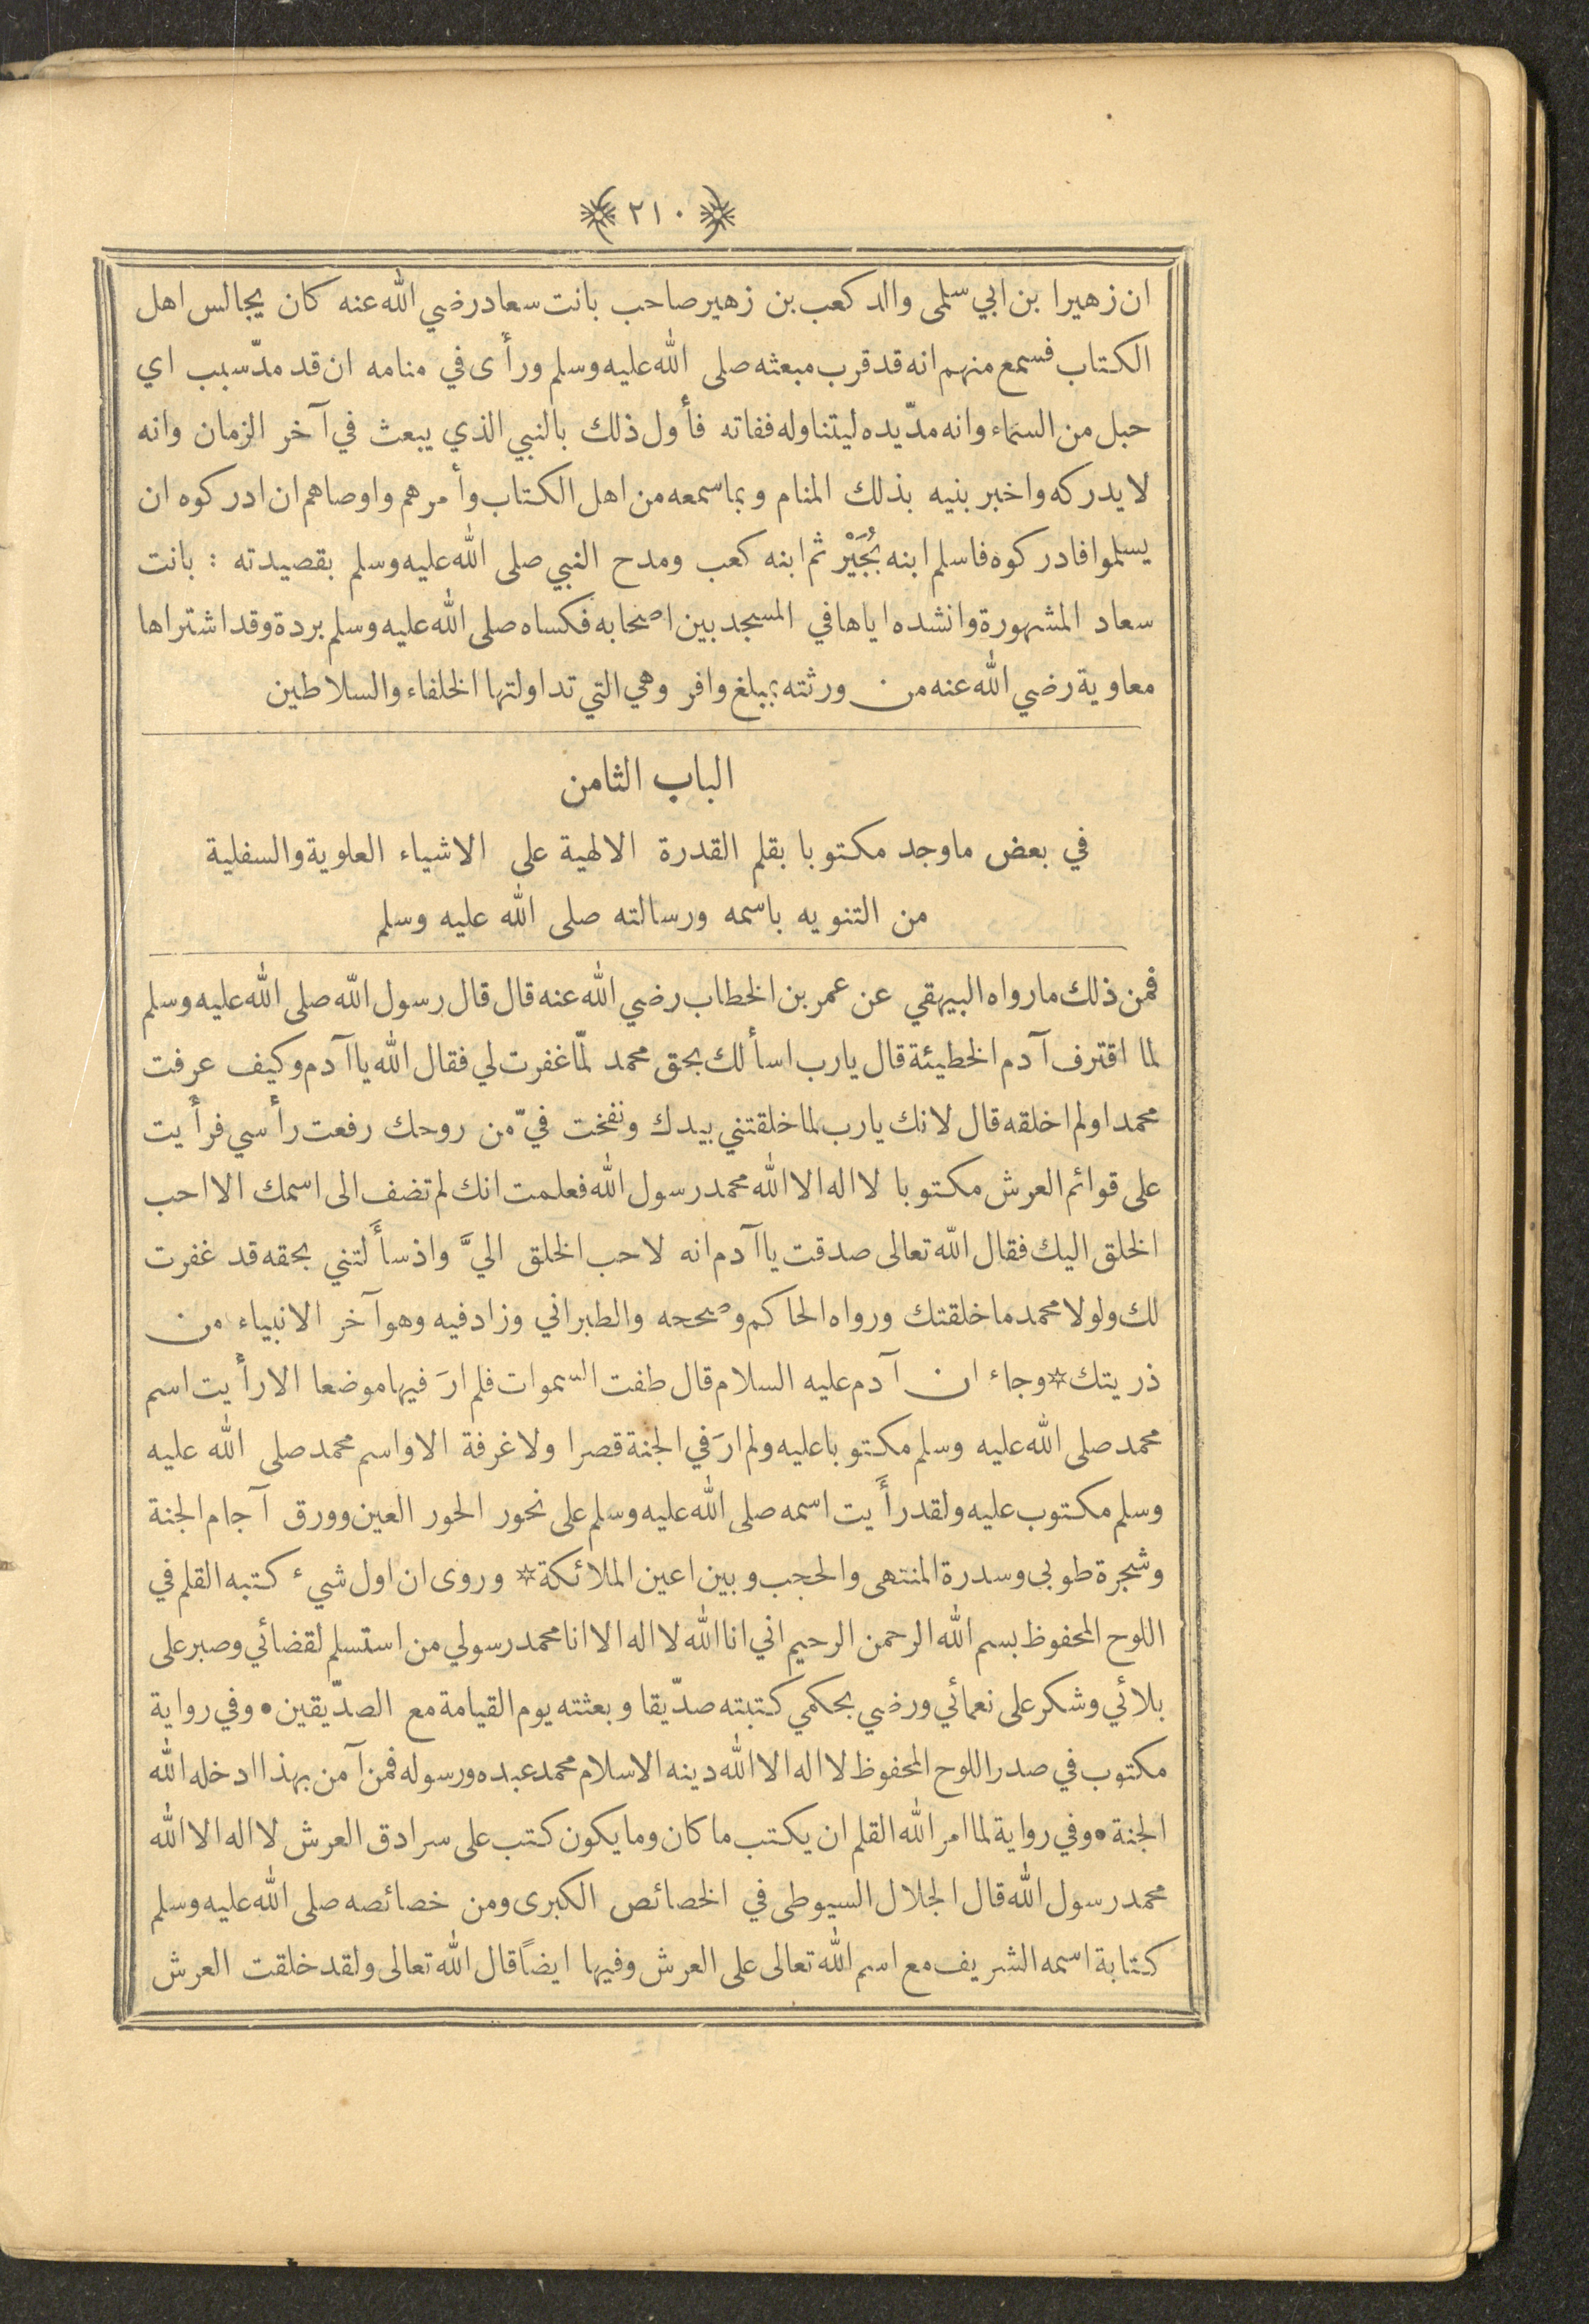 ﴿ ٢١٠ ﴾
ان زهيرا بن ابي سلمى والد كعب بن زهير صاحب بانت سعاد رضي الله عنه كان يجالس اهل
الكتاب فسمع منهم انه قد قرب مبعثه صلى الله عليه وسلم ورأى في منامه ان قد مدّ سبب اي
حبل من السماء وانه مدّ يده ليتناوله ففاته فأول ذلك بالنبي الذي يبعث في آخر الزمان وانه
لا يدركه واخبر بنيه بذلك المنام وبما سمعه من اهل الكتاب وأمرهم واوصاهم ان ادركوه ان
يسلموا فادركوه فاسلم ابنه بُجَيْر ثم ابنه كعب ومدح النبي صلى الله عليه وسلم بقصيدته : بانت
سعاد المشهورة وانشده اياها في المسجد بين اصحابه فكساه صلى الله عليه وسلم بردة وقد اشتراها
معاوية رضي الله عنه من ورثته بمبلغ وافر وهي التي تداولتها الخلفاء والسلاطين
الباب الثامن
في بعض ما وجد مكتوبا بقلم القدرة الالهية على الاشياء العلوية والسفلية
من التنويه باسمه ورسالته صلى الله عليه وسلم
فمن ذلك ما رواه البيهقي عن عمر بن الخطاب رضي الله عنه قال قال رسول الله صلى الله عليه وسلم
لما اقترف آدم الخطيئة قال يارب اسألك بحق محمد لمّا غفرت لي فقال الله يا آدم وكيف عرفت
محمدا ولم اخلقه قال لانك يارب لما خلقتني بيدك ونفخت فيّ من روحك رفعت رأسي فرأيت
على قوائم العرش مكتوبا لا اله الا الله محمد رسول الله فعلمت انك لم تضف الى اسمك الا احب
الخلق اليك فقال الله تعالى صدقت يا آدم انه لاحب الخلق اليَّ واذ سأَلتني بحقه قد غفرت
لك ولولا محمد ما خلقتك ورواه الحاكم وصححه والطبراني وزاد فيه وهو آخر الانبياء من
ذريتك * وجاء ان آدم عليه السلام قال طفت السموات فلم ارَ فيها موضعا الا رأيت اسم
محمد صلى الله عليه وسلم مكتوبا عليه ولم ارَ في الجنة قصرا ولا غرفة الا واسم محمد صلى الله عليه
وسلم مكتوب عليه ولقد رأَيت اسمه صلى الله عليه وسلم على نحور الحور العين وورق آجام الجنة
وشجرة طوبى وسدرة المنتهى والحجب وبين اعين الملائكة * وروى ان اول شيء كتبه القلم في
اللوح المحفوظ بسم الله الرحمن الرحيم اني انا الله لا اله الا انا محمد رسولي من استسلم لقضائي وصبر على
بلائي وشكر على نعمائي ورضي بحكمي كتبته صدّيقا وبعثته يوم القيامة مع الصدّيقين • وفي رواية
مكتوب في صدر اللوح المحفوظ لا اله الا الله دينه الاسلام محمد عبده ورسوله فمن آمن بهذا ادخله الله
الجنة • وفي رواية لما امر الله القلم ان يكتب ما كان وما يكون كتب على سرادق العرش لا اله الا الله
محمد رسول الله قال الجلال السيوطى في الخصائص الكبرى ومن خصائصه صلى الله عليه وسلم
كتابة اسمه الشريف مع اسم الله تعالى على العرش وفيها ايضاً قال الله تعالى ولقد خلقت العرش